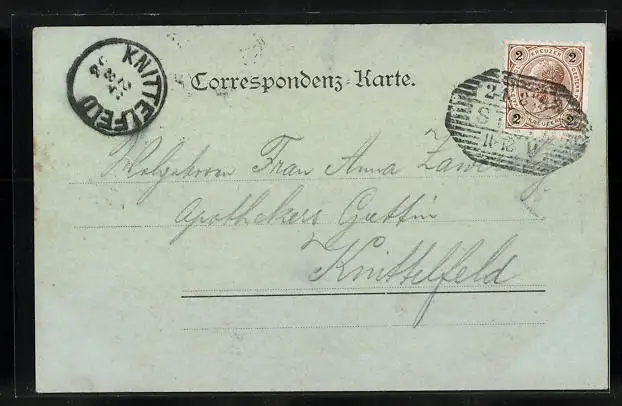 KNITTELFELD
Correspondenz-Karte.
2 KREUZER 2
2 KREUZER 2
11-12
Wolgeboren Frau Anna
Apothekers Gattin
Knittelfeld